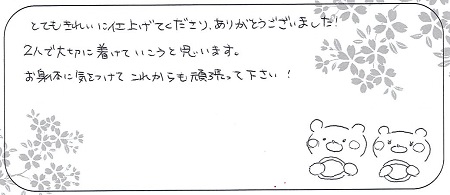 とてもきれいに仕上げてくださり、ありがとうございました!
2人で大切に着けていこうと思います。
お身体に気をつけてこれからも頑張って下さい!